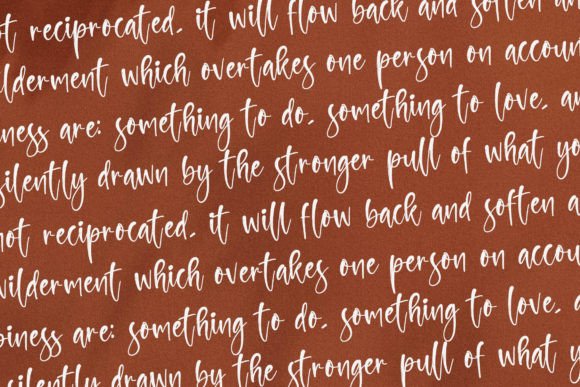 not reciprocated, it will flow back and soften an
ilderment which overtakes one person on accoun
iness are: something to do, something to love, an
silently drawn by the stronger pull of what yo
not reciprocated, it will flow back and soften a
wilderment which overtakes one person on accou
piness are: something to do, something to love, a
silently drawn by the stronger pull of what y